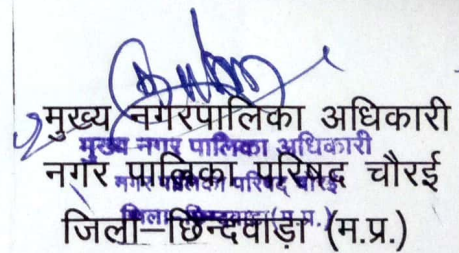 मुख्य नगरपालिका अधिकारी
मुख्य नगर पालिका अधिकारी
नगर पालिका परिषद चौरई
नगर पालिका परिषद चौरई
जिला–छिन्दवाड़ा (म.प्र.)
जिला छिन्दवाड़ा (म.प्र.)